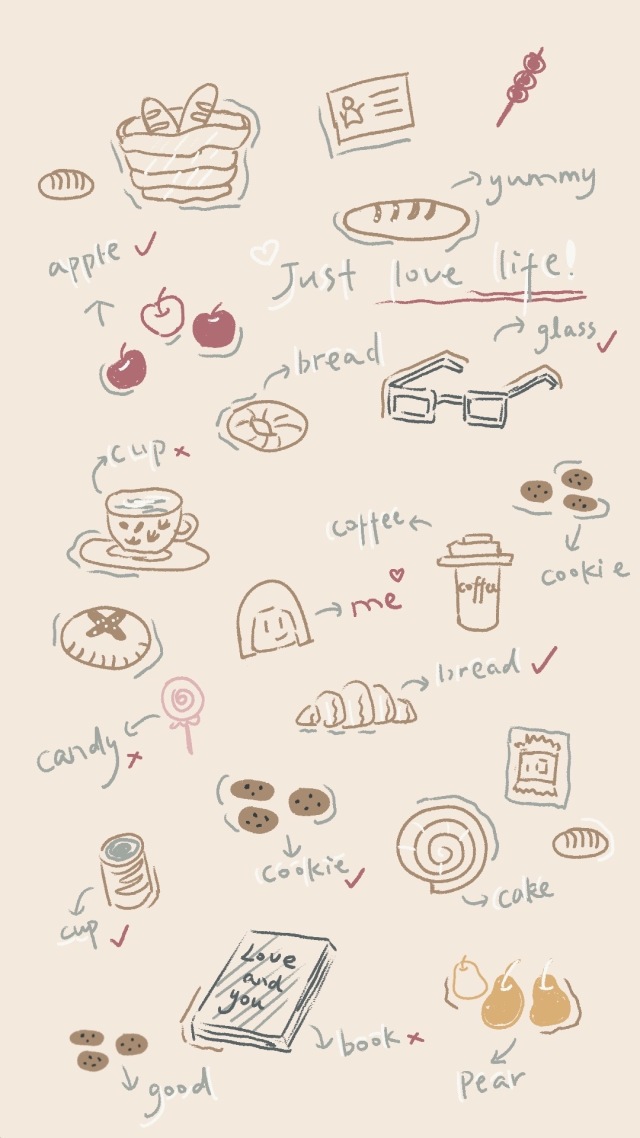 yummy
apple
Just love life!
glass
bread
cup
coffee
cookie
coffee
me
bread
candy
cookie
cake
cup
Love
and
you
book
good
pear